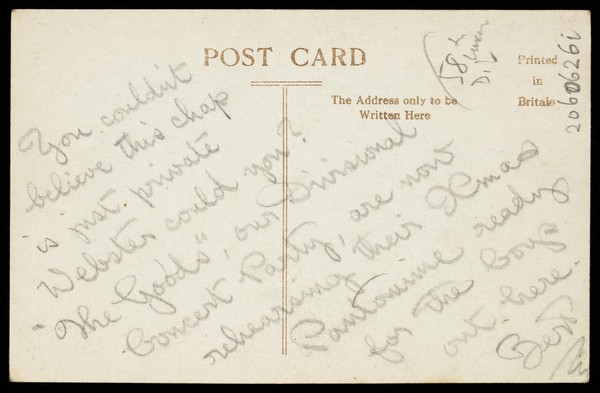 POST CARD
The Address only to be
Written Here
Printed
in
Britain
58th
Div
2060626i
You couldn't
believe this chap
is just private
Webster could you?
"The Goods", our Divisional
Concert Party, are now
rehearsing their Xmas
Pantomime ready
for the boys
out here.
Bert